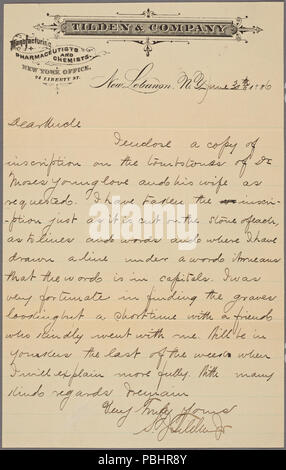 TILDEN & COMPANY
Manufacturing
PHARMACEUTISTS
AND CHEMISTS.
NEW YORK OFFICE,
LIBERTY ST.
New Lebanon, N.Y. June 30th 1886
Dear Uncle
I enclose a copy of
inscription on the tombstones of Dr
Moses Younglove and his wife as
requested. I have taken the inscrip-
-tion just as it is cut on the stone of each,
as to lines and words and where I have
drawn a line under a word it means
that the word is in capitals. I was
very fortunate in finding the graves
looking but a short time with a friend
who kindly went with me. Will be in
Yonkers the last of the week when
I will explain more fully. With many
kind regards, I remain
Very Truly Yours
alamy
Image ID: PBHR8Y
www.alamy.com